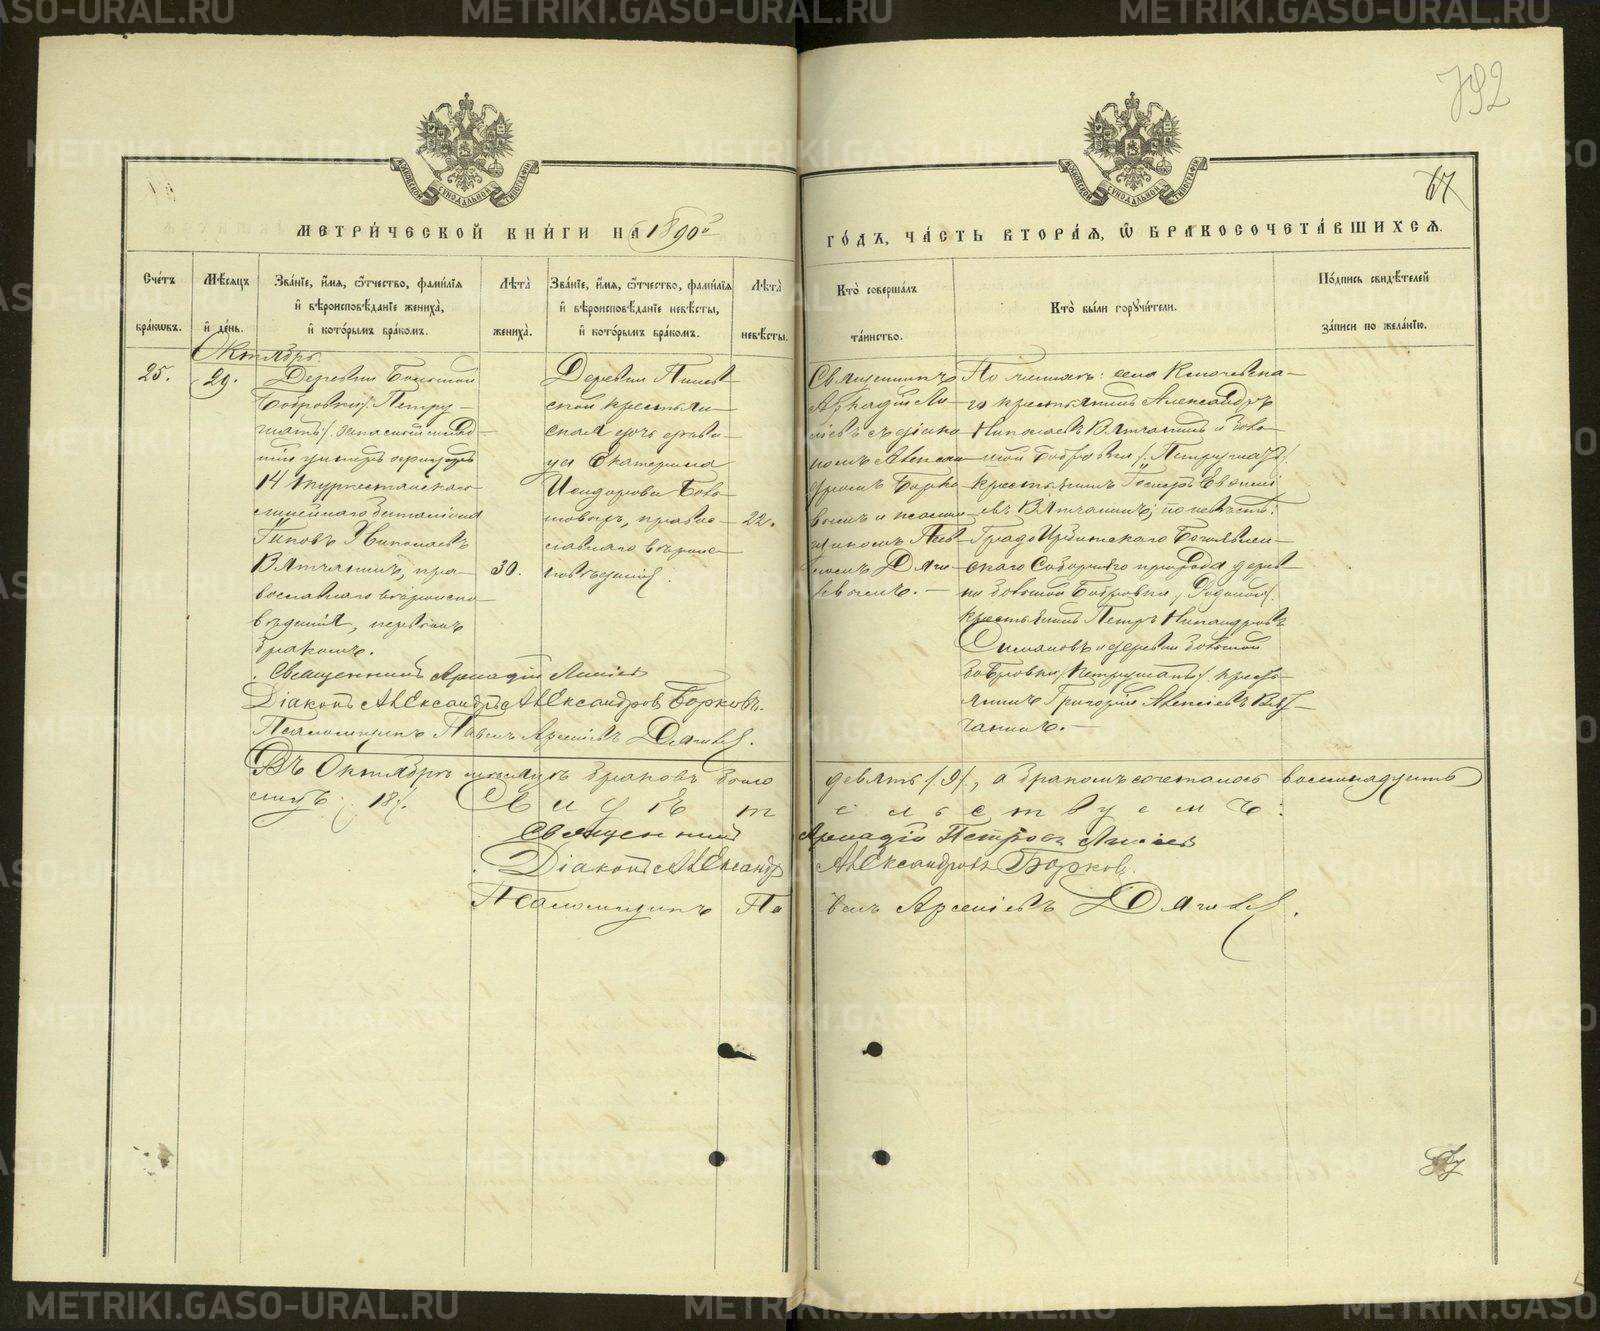 792
67
МОСКОВСКОЙ СѴНОДАЛЬНОЙ ТИПОГРАФІИ
МОСКОВСКОЙ СѴНОДАЛЬНОЙ ТИПОГРАФІИ
МЕТРИ́ЧЕСКОЙ КНИ́ГИ НА 1890й
ГО́ДЪ, ЧА́СТЬ ВТОРА́Я, Ѡ БРАКОСОЧЕТА́ВШИХСЯ.
Сче́тъ бра́кѡвъ.
Мѣ́сяцъ и҆ де́нь.
Зва́нїе, и҆́мя, ѻ҆́тчество, фами́лїя и҆ вѣроисповѣ́данїе жениха̀, и҆ кото́рымъ бра́комъ.
Лѣта̀ жениха̀.
Зва́нїе, и҆́мя, ѻ҆́тчество, фами́лїя и҆ вѣроисповѣ́данїе невѣ́сты, и҆ кото́рымъ бра́комъ.
Лѣта̀ невѣ́сты.
Кто̀ соверша́лъ та́инство.
Кто̀ бы́ли поручи́тели.
По́дпись свидѣ́телей за́писи по жела́нїю.
Октябрь.
25.
29.
Деревни Большой
Бобровки /Петру-
шаты/ запасный млад-
шій унтеръ офицеръ
14 Туркестанскаго
линейнаго баталіона
Николаевъ
Вятчанинъ, пра-
вославнаго вѣроиспо-
вѣданія, первымъ
бракомъ.
30.
Деревни
ской крестьян-
ская дочь дѣви-
ца Екатерина
Исидорова
православ-
славнаго вѣроис-
повѣданія.
22.
Священникъ
Аркадій Ли-
піевъ съ діако-
номъ Алексан-
дромъ Борко-
вымъ и псалом-
щикомъ Пав-
ломъ Дяги-
левымъ.
По женихѣ: села Ключевска-
го крестьянинъ Александръ
Николаевъ Вятчанинъ и Боль-
шой Бобровки /Петрушата/
крестьянинъ
евъ Вятчанинъ; по невѣстѣ:
Градо Ирбитскаго Богоявлен-
скаго Собора прихода дерев-
ни большой Бобровки
крестьянинъ Петръ Никандровъ
и деревни большой
Бобровки /Петрушаты/ кресть-
янинъ Григорій Алексіевъ Вят-
чанинъ.
Священникъ Аркадій Липіевъ
Діаконъ Александръ Александровъ Борковъ.
Псаломщикъ Павелъ Арсеніевъ Дягилевъ.
Въ Октябрѣ мѣсяцѣ браковъ было девять /9/, а бракомъ сочеталось восемнадцать
лицъ /18/.
Свидѣтельствуемъ:
Священникъ Аркадій Петровъ Липіевъ
Діаконъ Александръ Александровъ Борковъ.
Псаломщикъ Павелъ Арсеніевъ Дягилевъ.
METRIKI.GASO-URAL.RU